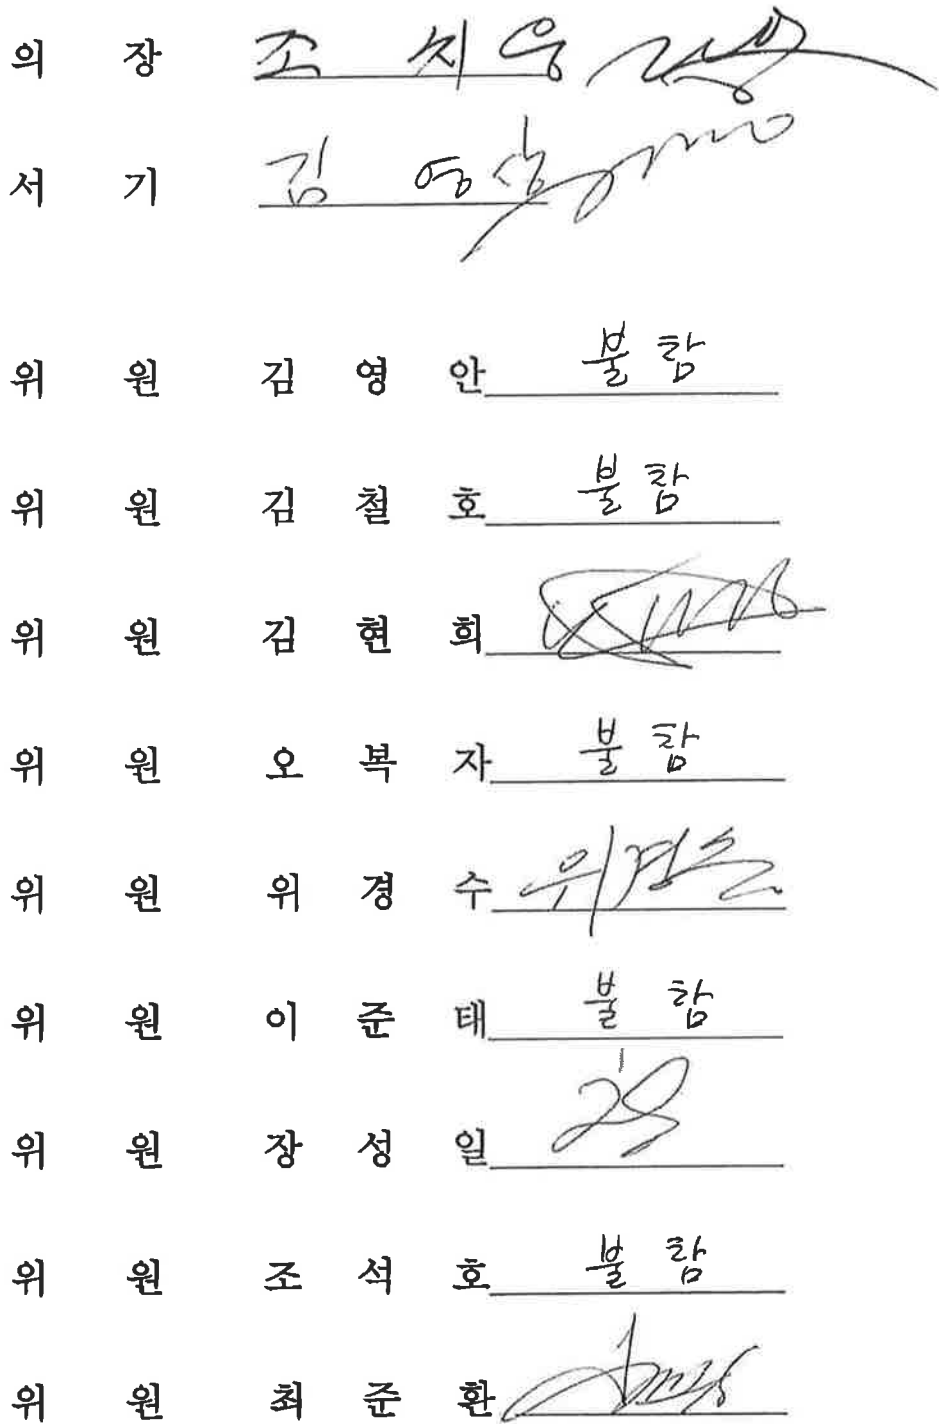 의 장 조 치 웅
서 기 김 영 삼
위 원 김 영 안 불 참
위 원 김 철 호 불 참
위 원 김 현 희
위 원 오 복 자 불 참
위 원 위 경 수 위경수
위 원 이 준 태 불 참
위 원 장 성 일
위 원 조 석 호 불 참
위 원 최 준 환